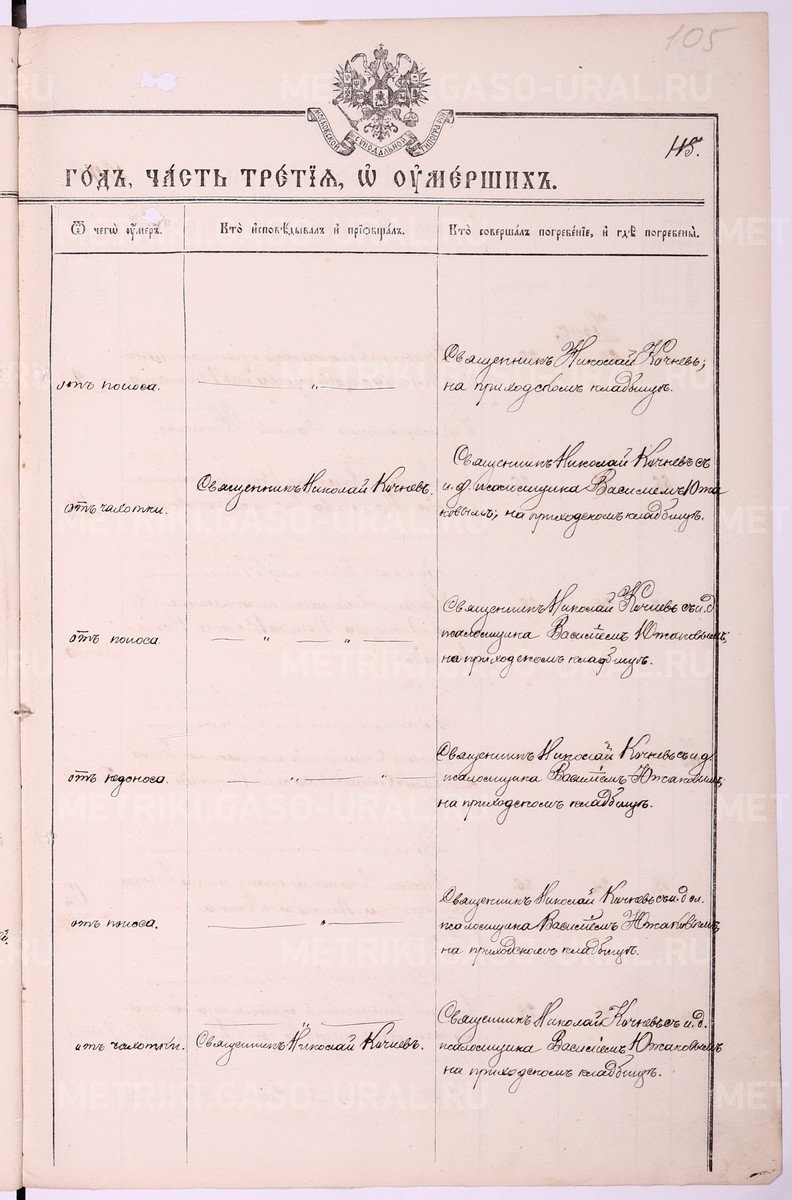 105
МОСКОВСКОЙ СѴНОДАЛЬНОЙ ТИПОГРАФІИ
115.
ГО́ДЪ, ЧА́СТЬ ТРЕ́ТІЯ, Ѡ҆ ОУ҆МЕ́РШИХЪ.
Ѿ чегѡ̀ ᲂу҆́меръ.
Кто̀ и҆сповѣ́дывалъ и҆ пріѡбща́лъ.
Кто̀ соверша́лъ погребе́ніе, и҆ гдѣ̀ погребены̀.
отъ поноса.
— „ —
Священникъ Николай Кочневъ;
на приходскомъ кладбищѣ.
отъ чахотки.
Священникъ Николай Кочневъ.
Священникъ Николай Кочневъ съ
и. д. псаломщика Василіемъ Южа
ковымъ; на приходскомъ кладбищѣ.
отъ поноса.
— „ — „ —
Священникъ Николай Кочневъ съ и. д.
псаломщика Василіемъ Южаковымъ;
на приходскомъ кладбищѣ.
отъ недоноса.
— „ — „ —
Священникъ Николай Кочневъ съ и. д.
псаломщика Василіемъ Южаковымъ;
на приходскомъ кладбищѣ.
отъ поноса.
— „ —
Священникъ Николай Кочневъ съ и. д.
псаломщика Василіемъ Южаковымъ
на приходскомъ кладбищѣ.
отъ чахотки.
Священникъ Николай Кочневъ.
Священникъ Николай Кочневъ съ и. д.
псаломщика Василіемъ Южаковымъ
на приходскомъ кладбищѣ.
METRIKI.GASO-URAL.RU